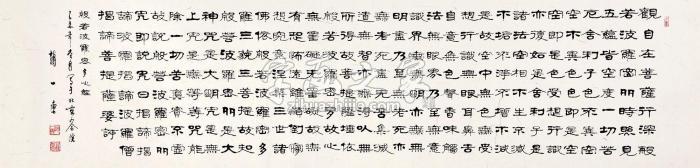 觀自在菩薩行深般
若波羅蜜多時照見
五蘊皆空度一切苦
厄舍利子色不異空
空不異色色即是空
空即是色受想行識
亦復如是舍利子是
諸法空相不生不滅
不垢不淨不增不減
是故空中無色無受
想行識無眼耳鼻舌
身意無色聲香味觸
法無眼界乃至無意
識界無無明亦無無
明盡乃至無老死亦
無老死盡無苦集滅
道無智亦無得以無
所得故菩提薩埵依
般若波羅蜜多故心
無罣礙無罣礙故無
有恐怖遠離顛倒夢
想究竟涅槃三世諸
佛依般若波羅蜜多
故得阿耨多羅三藐
三菩提故知般若波
羅蜜多是大神咒是
大明咒是無上咒是
無等等咒能除一切
苦真實不虛故說般
若波羅蜜多咒即說
咒曰揭諦揭諦波羅
揭諦波羅僧揭諦菩
提薩婆訶
般若波羅密多心經